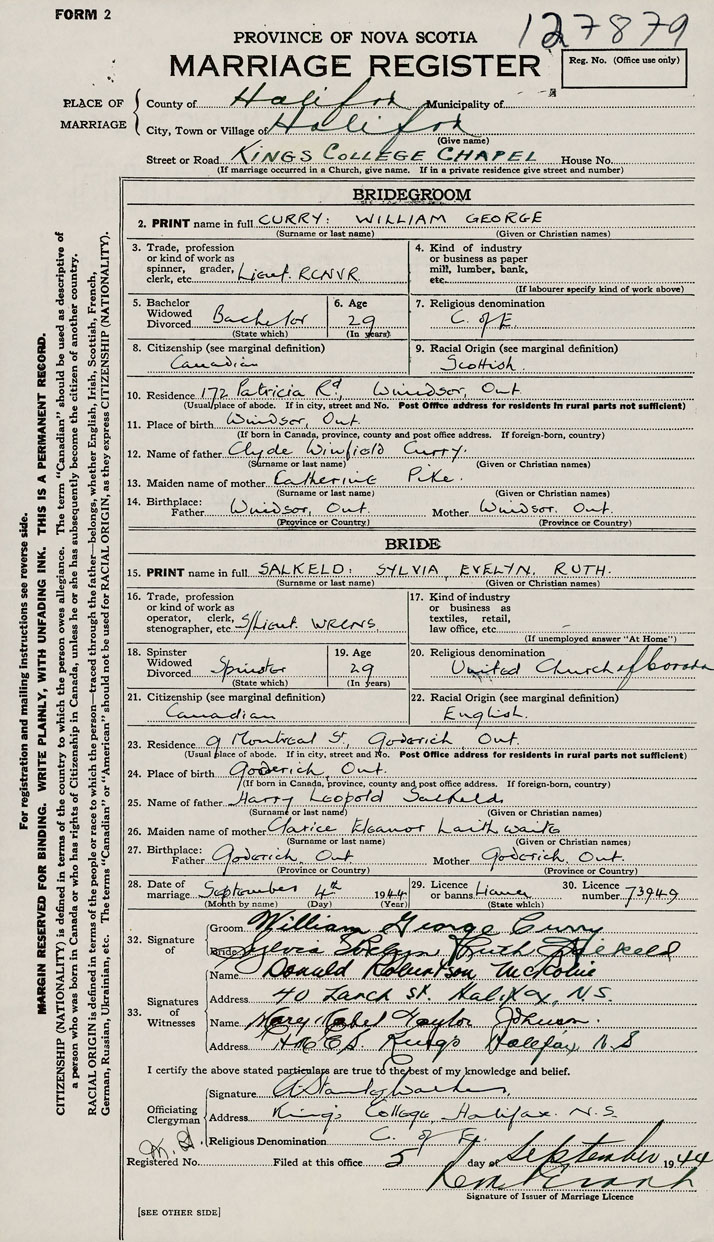 FORM 2
127879
PROVINCE OF NOVA SCOTIA
MARRIAGE REGISTER
Reg. No. (Office use only)
PLACE OF MARRIAGE
County of Halifax Municipality of
City, Town or Village of Halifax
(Give name)
Street or Road KINGS COLLEGE CHAPEL House No.
(If marriage occurred in a Church, give name. If in a private residence give street and number)
BRIDEGROOM
2. PRINT name in full CURRY: WILLIAM GEORGE
(Surname or last name) (Given or Christian names)
3. Trade, profession
or kind of work as
spinner, grader,
clerk, etc. Lieut. RCNVR
4. Kind of industry
or business as paper
mill, lumber, bank,
etc.
(If labourer specify kind of work above)
5. Bachelor
Widowed
Divorced Bachelor
(State which)
6. Age
29
(In years)
7. Religious denomination
C. of E.
8. Citizenship (see marginal definition)
Canadian
9. Racial Origin (see marginal definition)
Scottish.
10. Residence 172 Patricia Rd, Windsor, Ont.
(Usual place of abode. If in city, street and No. Post Office address for residents in rural parts not sufficient)
11. Place of birth Windsor, Ont.
(If born in Canada, province, county and post office address. If foreign-born, country)
12. Name of father Clyde Winfield Curry.
(Surname or last name) (Given or Christian names)
13. Maiden name of mother Catherine Pike.
(Surname or last name) (Given or Christian names)
14. Birthplace:
Father Windsor, Ont. Mother Windsor. Ont.
(Province or Country) (Province or Country)
BRIDE
15. PRINT name in full SALKELD: SYLVIA EVELYN. RUTH.
(Surname or last name) (Given or Christian names)
16. Trade, profession
or kind of work as
operator, clerk,
stenographer, etc. S/Lieut. WRCNS
17. Kind of industry
or business as
textiles, retail,
law office, etc. –
(If unemployed answer "At Home")
18. Spinster
Widowed
Divorced Spinster
(State which)
19. Age
29
(In years)
20. Religious denomination
United Church of Canada
21. Citizenship (see marginal definition)
Canadian
22. Racial Origin (see marginal definition)
English.
23. Residence 9 Montreal St, Goderich, Ont.
(Usual place of abode. If in city, street and No. Post Office address for residents in rural parts not sufficient)
24. Place of birth Goderich, Ont.
(If born in Canada, province, county and post office address. If foreign-born, country)
25. Name of father Harry Leopold Salkeld
(Surname or last name) (Given or Christian names)
26. Maiden name of mother Clarice Eleanor Laithwaite
(Surname or last name) (Given or Christian names)
27. Birthplace:
Father Goderich, Ont Mother Goderich. Ont.
(Province or Country) (Province or Country)
28. Date of
marriage September 4th 1944
(Month by name) (Day) (Year)
29. Licence
or banns License
(State which)
30. Licence
number 73949
32. Signature
of
Groom William George Curry
Bride Sylvia Evelyn Ruth Salkeld
33. Signatures
of
Witnesses
Name Donald Robertson McRobie
Address 40 Larch St. Halifax, N.S.
Name Mary Mabel Taylor Johnson.
Address H.M.C.S. Kings Halifax, N.S
I certify the above stated particulars are true to the best of my knowledge and belief.
Officiating
Clergyman
Signature A Stanley Walker,
Address Kings College, Halifax. N.S.
Religious Denomination C. of E.
Registered No. Filed at this office 5 day of September 1944
Signature of Issuer of Marriage Licence
[SEE OTHER SIDE]
For registration and mailing instructions see reverse side.
MARGIN RESERVED FOR BINDING. WRITE PLAINLY, WITH UNFADING INK. THIS IS A PERMANENT RECORD.
CITIZENSHIP (NATIONALITY) is defined in terms of the country to which the person owes allegiance. The term "Canadian" should be used as descriptive of
a person who was born in Canada or who has rights of Citizenship in Canada, unless he or she has subsequently become the citizen of another country.
RACIAL ORIGIN is defined in terms of the people or race to which the person—traced through the father—belongs, whether English, Irish, Scottish, French,
German, Russian, Ukrainian, etc. The terms "Canadian" or "American" should not be used for RACIAL ORIGIN, as they express CITIZENSHIP (NATIONALITY).